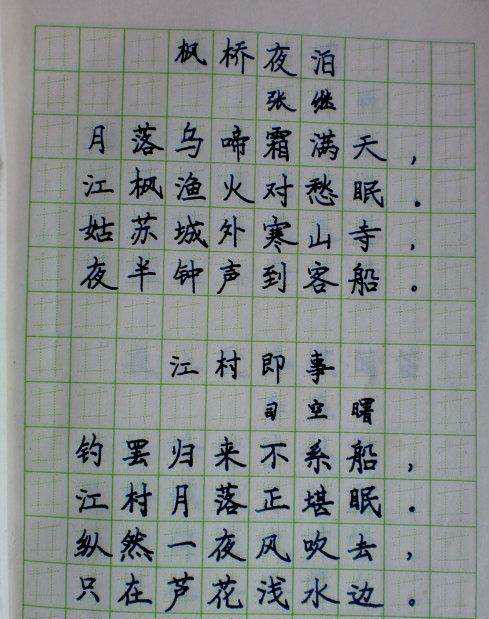 枫桥夜泊
张继
月落乌啼霜满天，
江枫渔火对愁眠。
姑苏城外寒山寺，
夜半钟声到客船。
江村即事
司空曙
钓罢归来不系船，
江村月落正堪眠。
纵然一夜风吹去，
只在芦花浅水边。